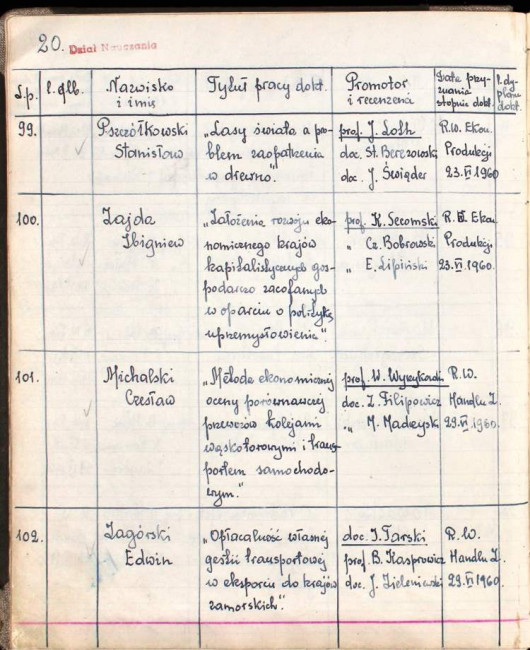 20. Dział Nauczania
L.p. l. alb. Nazwisko i imię Tytuł pracy dokt. Promotor i recenzenci Data przyznania stopnia dokt. l. dyplomu dokt.
99. Pszczółkowski Stanisław
„Lasy świata a pro-
blem zaopatrzenia
w drewno".
prof. J. Loth
doc. St. Berezowski
doc. J. Świąder
R.W. Ekon.
Produkcji
23.VI.1960
100. Zajda Zbigniew
„Założenia rozwoju eko-
nomicznego krajów
kapitalistycznych gos-
podarczo zacofanych
w oparciu o politykę
uprzemysłowienia".
prof. K. Secomski
„ Cz. Bobrowski
„ E. Lipiński
R.W. Ekon.
Produkcji
23.VI.1960.
101. Michalski Czesław
„Metoda ekonomicznej
oceny porównawczej
przewozów kolejami
wąskotorowymi i trans-
portem samochodo-
wym."
prof. W. Wyrzykowski
doc. Z. Filipowicz
„ M. Madeyski
R.W.
Handlu Z.
29.VI.1960.
102. Zagórski Edwin
„Opłacalność własnej
gestii transportowej
w eksporcie do krajów
zamorskich".
doc. I. Tarski
prof. B. Kasprowicz
doc. J. Zieleniewski
R.W.
Handlu Z.
29.VI.1960